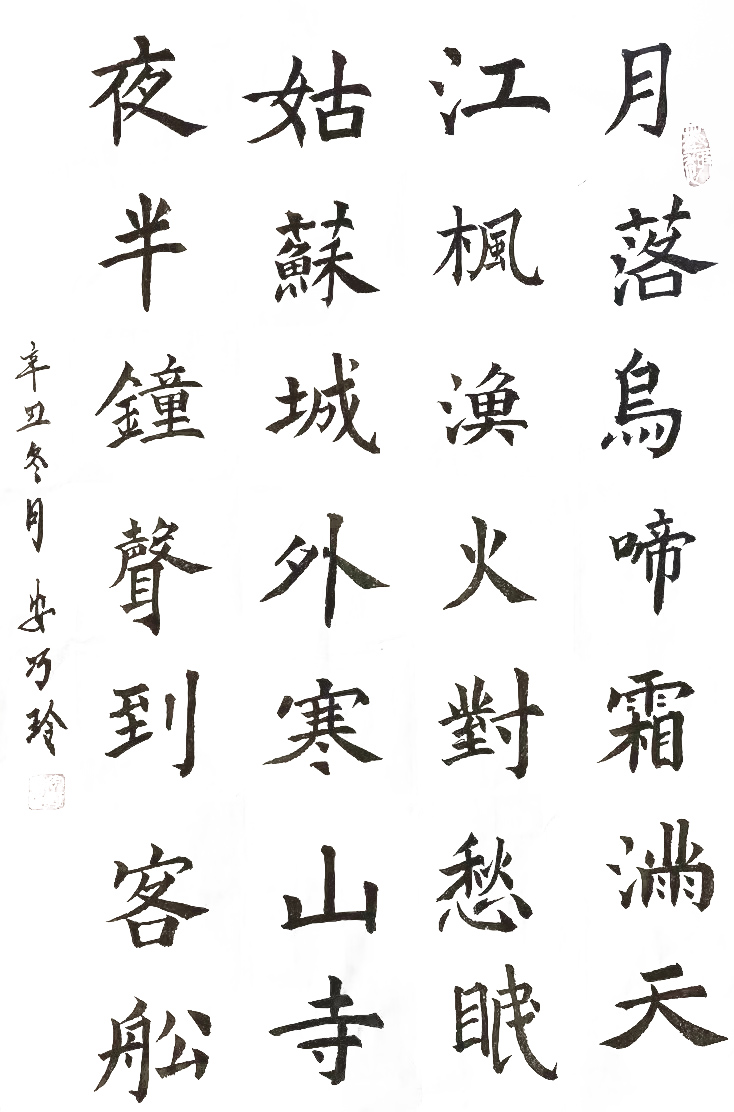 月落烏啼霜満天
江楓漁火對愁眠
姑蘇城外寒山寺
夜半鐘聲到客舩
辛丑冬月安巧玲